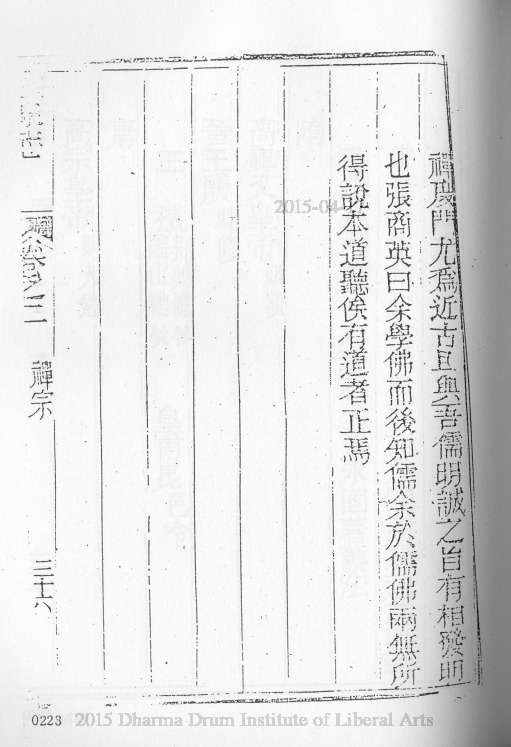 禪度門尤爲近古且與吾儒明誠之旨有相發明
也張商英曰余學佛而後知儒余於儒佛兩無所
得說本道聽俟有道者正焉
卷之三
禪宗
三十六
2015-04-
0223
2015 Dharma Drum Institute of Liberal Arts